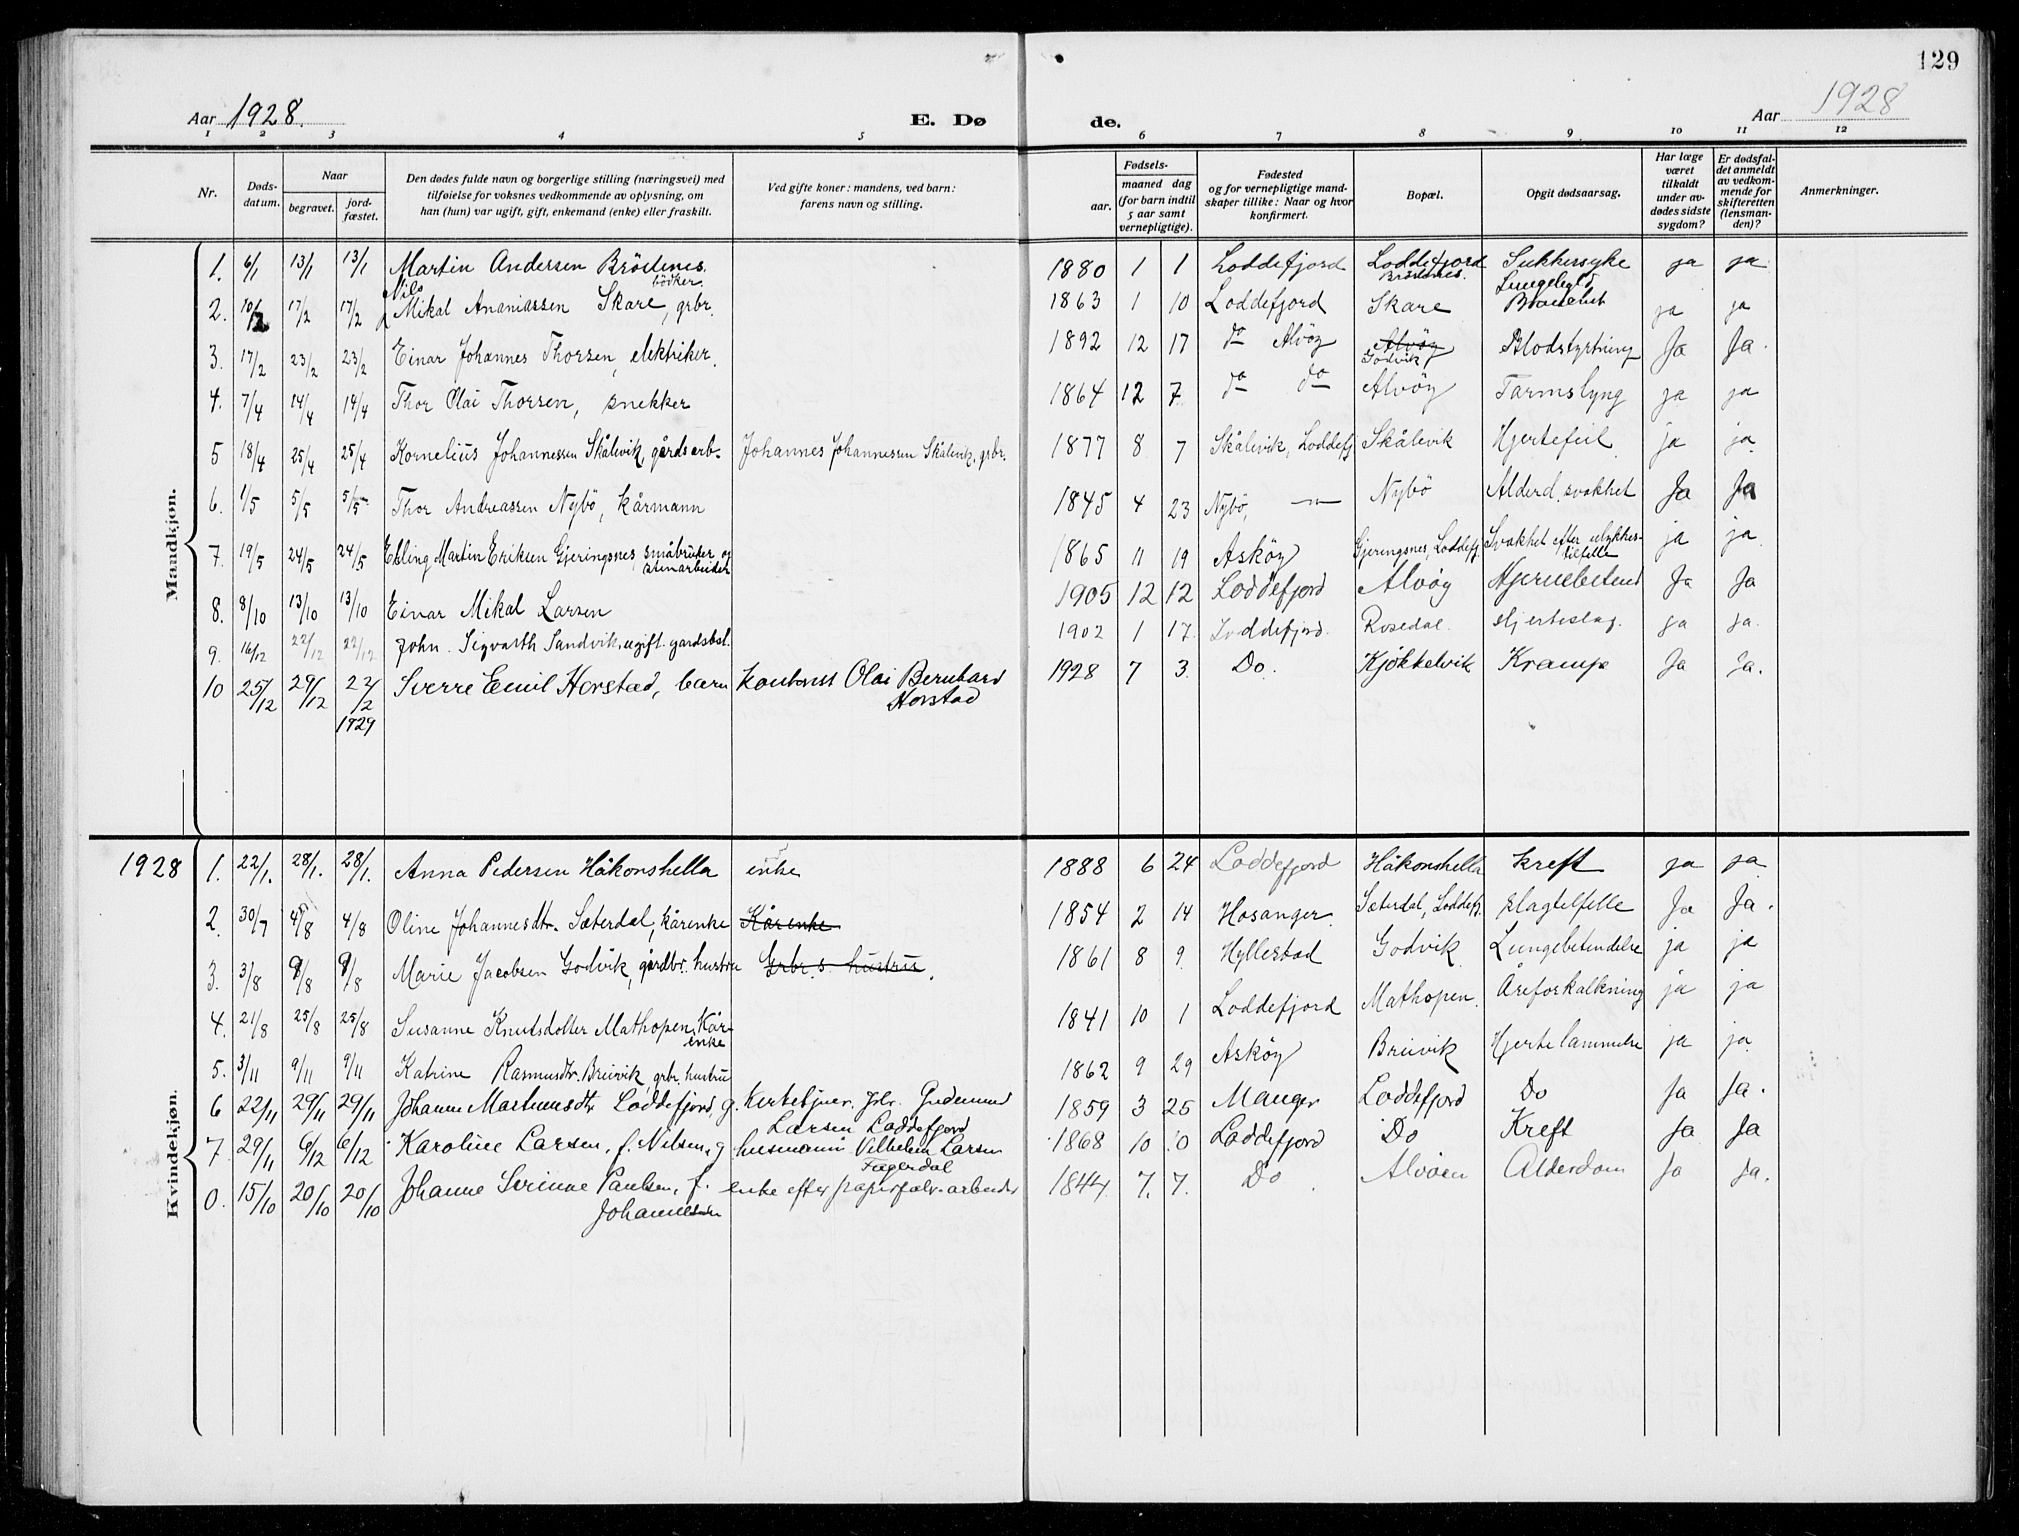 129
Aar 1928. E. Dø de. Aar 1928
1 2 3 4 5 6 7 8 9 10 11 12
Nr. Døds-datum. Naar begravet. jord-fæstet. Den dødes fulde navn og borgerlige stilling (næringsvei) med tilføielse for voksnes vedkommende av oplysning, om han (hun) var ugift, gift, enkemand (enke) eller fraskilt. Ved gifte koner: mandens, ved barn: farens navn og stilling. Fødsels- aar. maaned dag (for barn indtil 5 aar samt vernepligtige). Fødested og for vernepligtige mand-skaper tillike: Naar og hvor konfirmert. Bopæl. Opgit dødsaarsag. Har læge været tilkaldt under av-dødes sidste sygdom? Er dødsfal-det anmeldt av vedkom-mende for skifteretten (lensman-den)? Anmerkninger.
Mandkjøn.
1. 6/1 13/1 13/1 Martin Andersen Bröstenes. bödker. 1880 1 1 Loddefjord Loddefjord Sukkersyke ja ja
2. 17/2 17/2 Nils Mikal Ananiassen Skare, grbr. 1863 1 10 Loddefjord Skare ja ja
3. 17/2 23/2 23/2 Einar Johannes Thorsen, elektriker. 1892 12 17 do Alvöy Alvöy Godvik Blodstyrtning Ja Ja.
4. 7/4 14/4 14/4 Thor Olai Thorsen, snekker 1864 12 7 do do Alvöy Tarmslyng ja ja
5 18/4 25/4 25/4 Kornelius Johannessen Skålevik, gårdsarb. Johannes Johannessen Skålevik, grbr. 1877 8 7 Skålevik, Loddefj. Skålevik Hjertefeil ja ja.
6. 1/5 5/5 5/5 Thor Andreassen Nybö, kårmann 1845 4 23 Nybö, -"- Nybö Alderd. svakhet Ja Ja
7. 19/5 24/5 24/5 Elling Martin Eriksen Gjeringsnes, småbruker og stenarbeider 1865 11 19 Asköy Gjeringsnes, Loddefj. Svakhet efter ulykkes-tilfelle ja ja
8. 8/10 13/10 13/10 Einar Mikal Larsen 1905 12 12 Loddefjord Alvöy Hjernebetend Ja Ja
9. 16/12 22/12 22/12 John Sigvarth Sandvik, ugift. gardsbst. 1902 1 17. Loddefjord. Rosedal. Hjerteslag. ja ja.
10 25/12 29/12 Sverre Emil Horstad, barn Kontorist Olai Bernhard Horstad 1928 7 3. Do. Kjøkkelvik Krampe Ja Ja.
1929
Kvindekjøn.
1928 1. 22/1. 28/1. 28/1. Anna Pedersen Håkonshella enke 1888 6 24 Loddefjord Håkonshella kreft ja ja
2. 30/7 4/8 4/8 Oline Johannesdtr. Sæterdal, kårenke Kårenke 1854 2 14 Hosanger. Sæterdal, Loddefj. slagtilfelle Ja Ja.
3. 3/8 9/8 9/8 Marie Jacobsen Godvik, gårdbr. hustru Grbr.s hustru. 1861 8 9. Hyllestad Godvik Lungebetendelse ja ja
4. 21/8 25/8 25/8 Susanne Knutsdotter Mathopen, Kår-enke 1841 10 1 Loddefjord Mathopen. Åreforkalkning ja ja
5. 3/11 9/11 9/11 Katrine Rasmusdtr. Breivik, grbr. hustru 1862 9 29 Asköy Breivik Hjertelammelse ja ja.
6 22/11 29/11 29/11 Johanne Martinusdtr Loddefjord, g. Kirketjner. Gudmund Larsen Loddefjord 1859 3 25 Manger Loddefjord Do Ja Ja.
7. 29/11 6/12 6/12 Karoline Larsen, f. Nilsen, g husmann Vilhelm Larsen Fagerdal 1868 10 Loddefjord Do Kreft Ja Ja
15/10 20/10 20/10 Johanne Serinne Paulsen, f. Johannesen enke efter papirfabr. arbeider 1844 7. 7. Do Alvöen Alderdom Ja Ja.